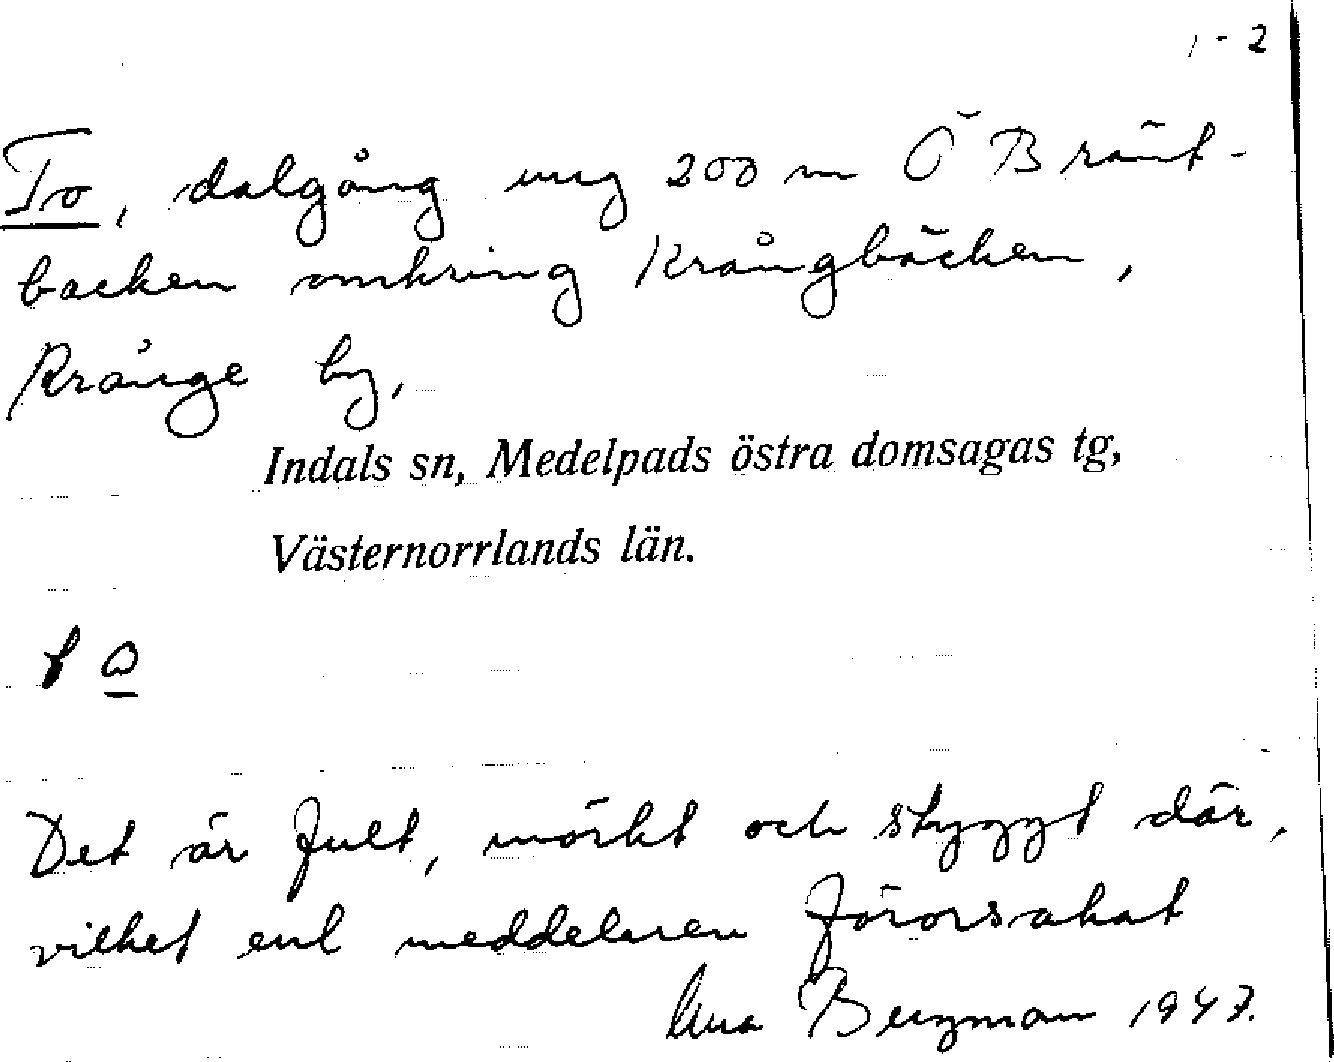 1-2
To, dalgång ung 200 m Ö Bränt-
backen omkring Krångbäcken,
Krånge by,
Indals sn, Medelpads östra domsagas tg,
Västernorrlands län.
Det är fult, mörkt och styggt där,
vilket enl meddelaren förorsakat
Bergman 1947.